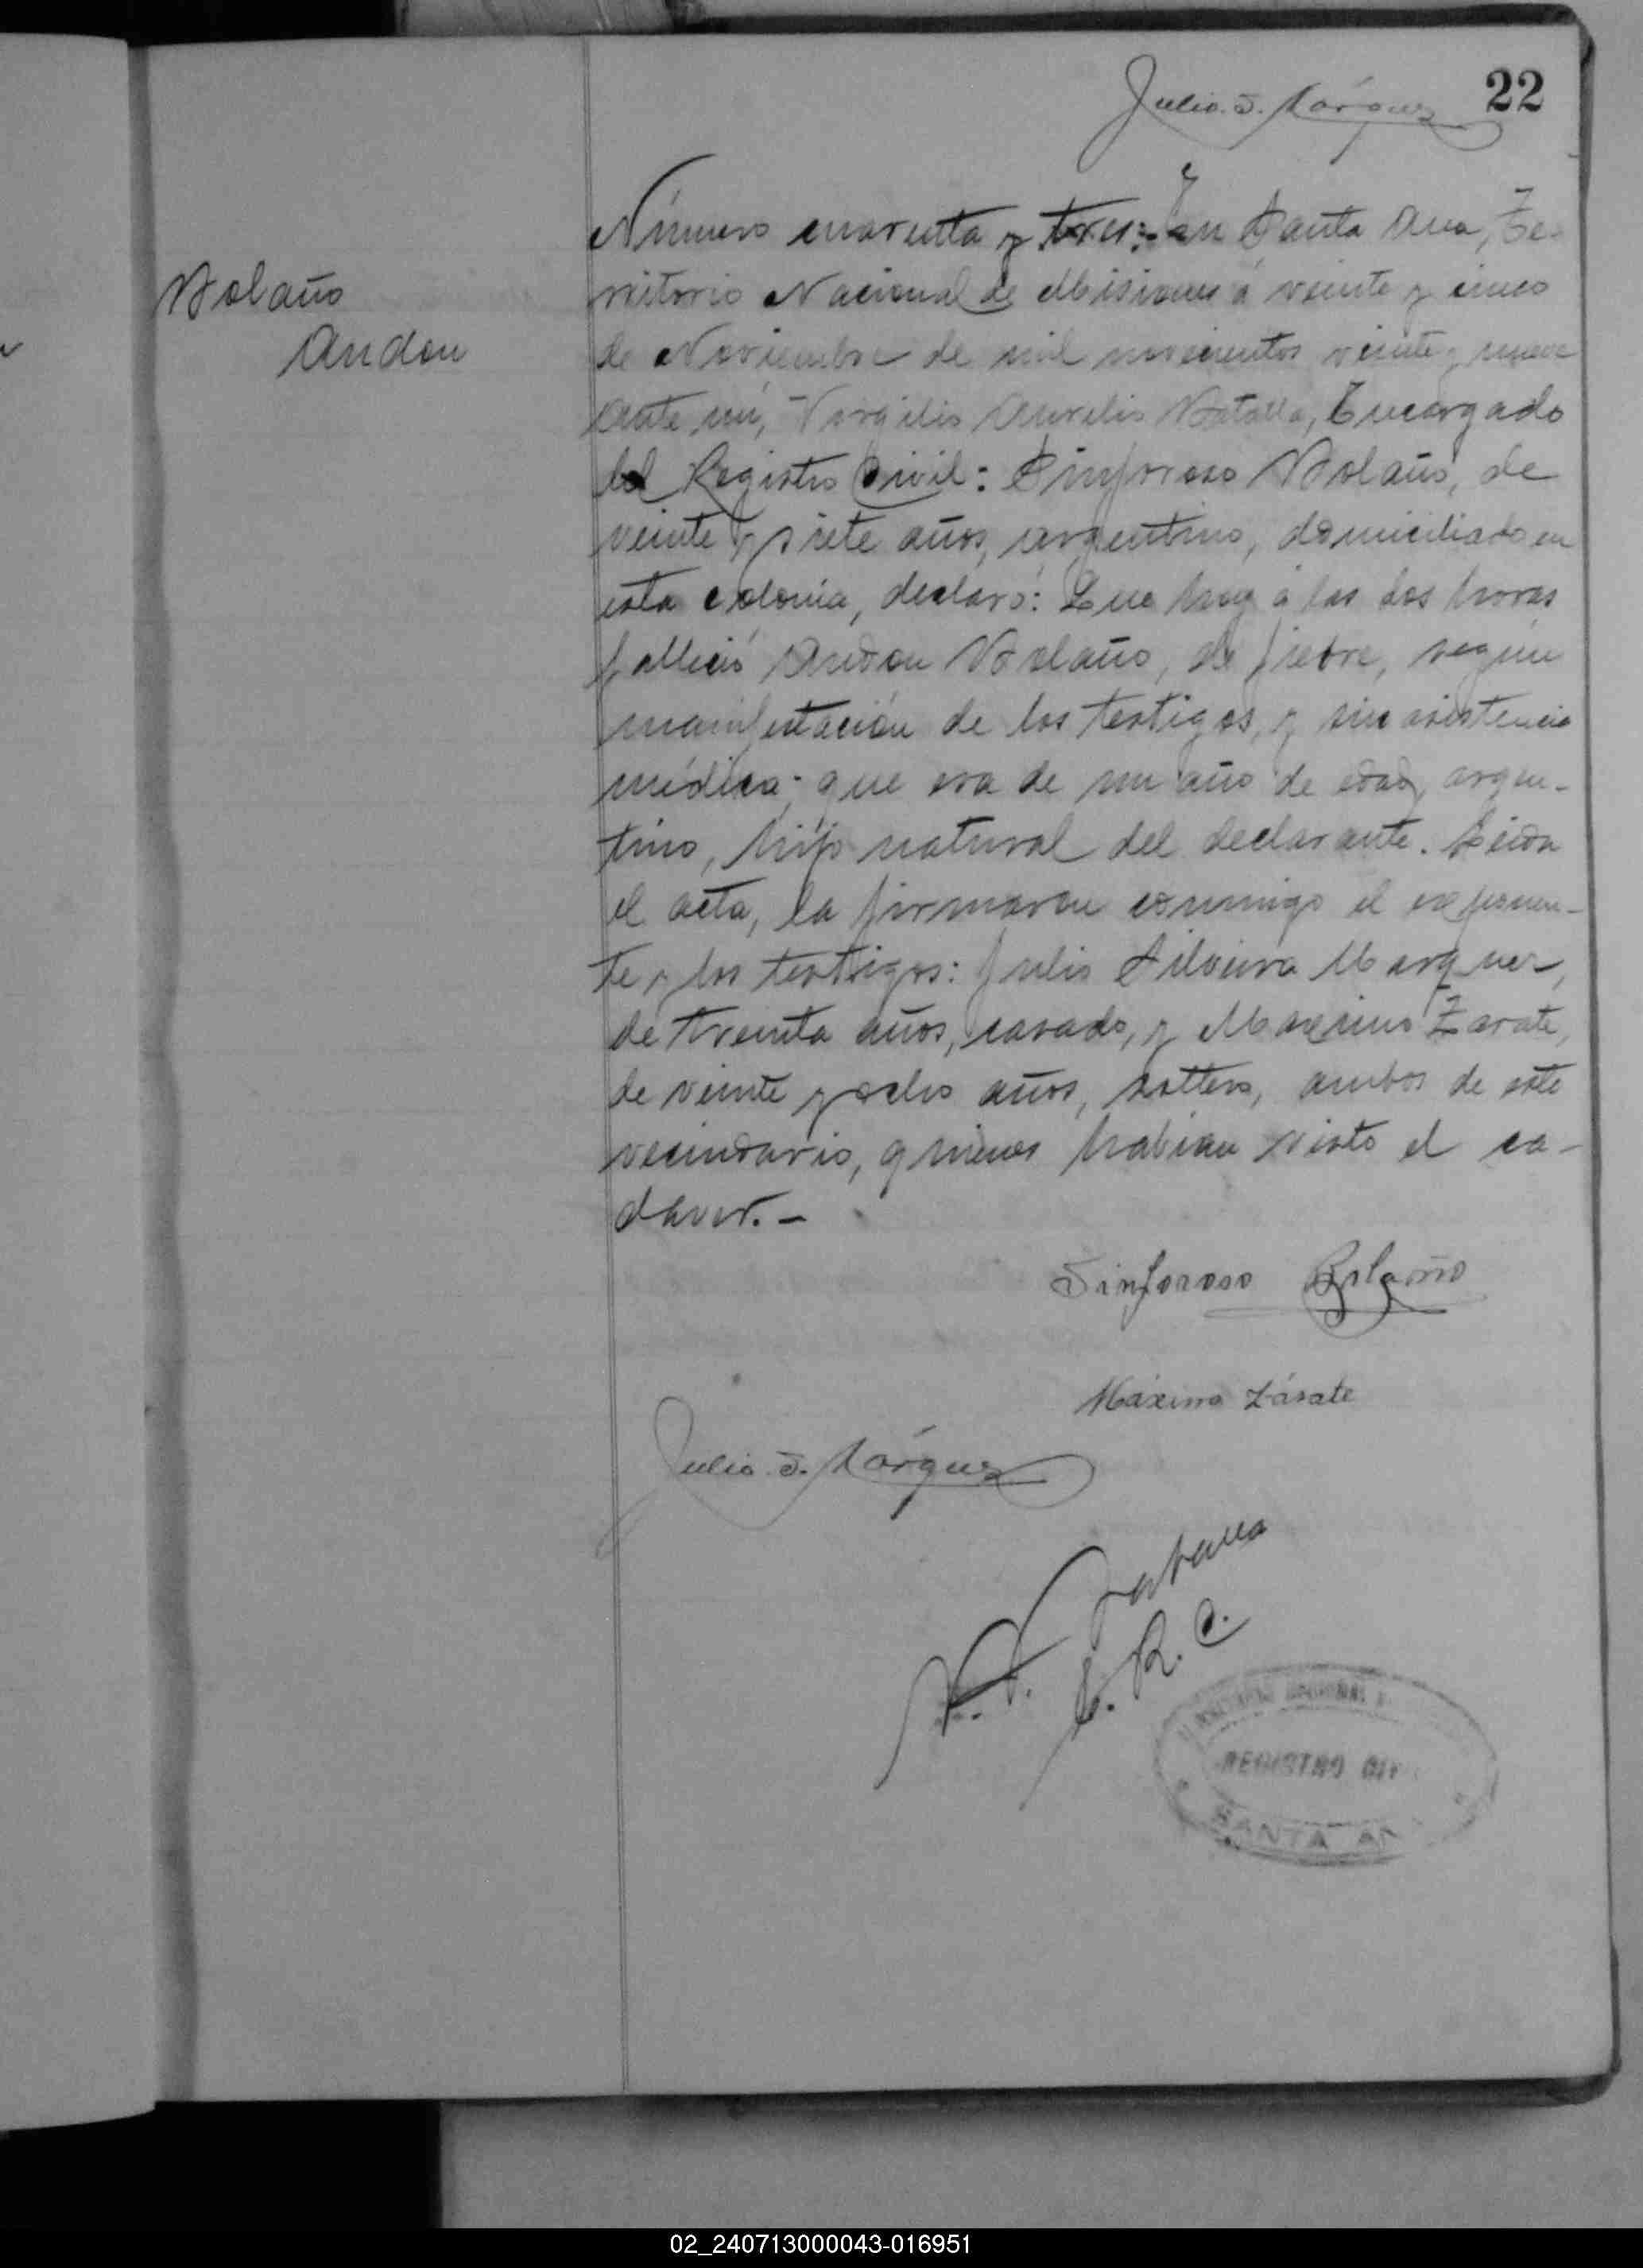 22
Julio S. Márquez
Bolaño
Andon
Número cuarenta y tres:- En Santa Ana, Te-
rritorio Nacional de Misiones á veinte y cinco
de Noviembre de mil novecientos veinte y nueve
ante mí, Virgilio Aurelio Batalla, Encargado
del Registro Civil: Sinforoso Bolaño, de
veinte y siete años, argentino, domiciliado en
esta colonia, declaró: Que hoy á las dos horas
falleció Andon Bolaño, de fiebre, según
manifestación de los testigos, y sin asistencia
médica; que era de un año de edad, argen-
tino, hijo natural del declarante. Leida
el acta, la firmaron conmigo el exponen-
te y los testigos: Julio Silveira Marquez,
de treinta años, casado, y Maximo Zarate,
de veinte y ocho años, soltero, ambos de este
vecindario, quienes habian visto el ca-
daver.-
Sinforoso Bolaño
Máximo Zárate
Julio S. Márquez
V. A. Batalla
E. R. C.
NACIONAL
REGISTRO CIV
SANTA AN
02_240713000043-016951